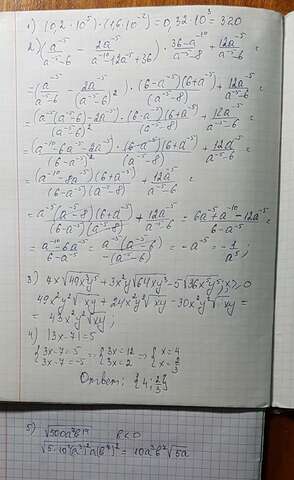 1) (0,2·10⁵)·(1,6·10⁻²) = 0,32·10³ = 320
2) (a⁻⁵/(a⁻⁵-6) - 2a⁻⁵/(a⁻¹⁰-12a⁻⁵+36))·(36-a⁻¹⁰)/(a⁻⁵-8) + 12a⁻⁵/(a⁻⁵-6) =
= (a⁻⁵/(a⁻⁵-6) - 2a⁻⁵/(a⁻⁵-6)²)·(6-a⁻⁵)(6+a⁻⁵)/(a⁻⁵-8) + 12a⁻⁵/(a⁻⁵-6) =
= (a⁻⁵(a⁻⁵-6)-2a⁻⁵)/(a⁻⁵-6)²·(6-a⁻⁵)(6+a⁻⁵)/(a⁻⁵-8) + 12a⁻⁵/(a⁻⁵-6) =
= (a⁻¹⁰-6a⁻⁵-2a⁻⁵)/(6-a⁻⁵)²·(6-a⁻⁵)(6+a⁻⁵)/(a⁻⁵-8) + 12a⁻⁵/(a⁻⁵-6) =
= (a⁻¹⁰-8a⁻⁵)(6+a⁻⁵)/((6-a⁻⁵)(a⁻⁵-8)) + 12a⁻⁵/(a⁻⁵-6) =
= a⁻⁵(a⁻⁵-8)(6+a⁻⁵)/((6-a⁻⁵)(a⁻⁵-8)) + 12a⁻⁵/(a⁻⁵-6) = (6a⁻⁵+a⁻¹⁰-12a⁻⁵)/(6-a⁻⁵) =
= (a⁻¹⁰-6a⁻⁵)/(6-a⁻⁵) = a⁻⁵(a⁻⁵-6)/(-(a⁻⁵-6)) = -a⁻⁵ = -1/a⁵;
3) 4x√(49x³y⁵) + 3x²y√(64xy³) - 5√(36x⁵y⁵); x,y≥0
28x²y²√xy + 24x²y²√xy - 30x²y²√xy =
=
4) |3x-7|=5
{3x-7=5 {3x=12 {x=4
{3x-7=-5 => {3x=2 => {x=2/3
Ответ: {4; 2/3}
5) b<0
= 10a²b²√5a